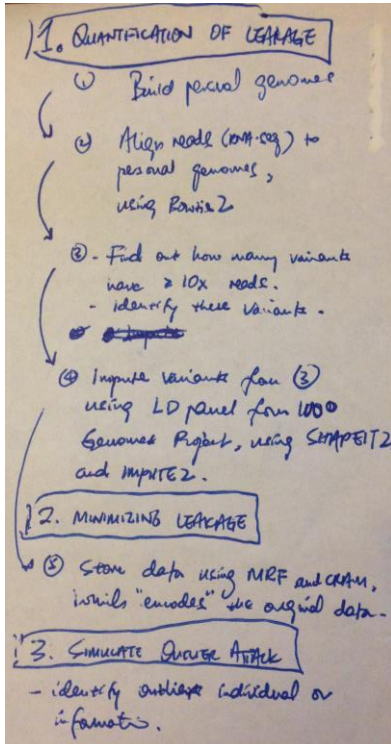 1. QUANTIFICATION OF LEAKAGE
① Build personal genomes
② Align reads (RNA-seq) to
personal genomes,
using Bowtie2
③ - Find out how many variants
have ≥ 10x reads.
- identify these variants.
④ Impute variants from ③
using LD panel from 1000
Genomes Project, using SHAPEIT2
and IMPUTE2.
2. MINIMIZING LEAKAGE
⑤ Store data using MRF and CRAM,
"encodes" the original data.
3. SIMULATE ATTACK
- identify individual or